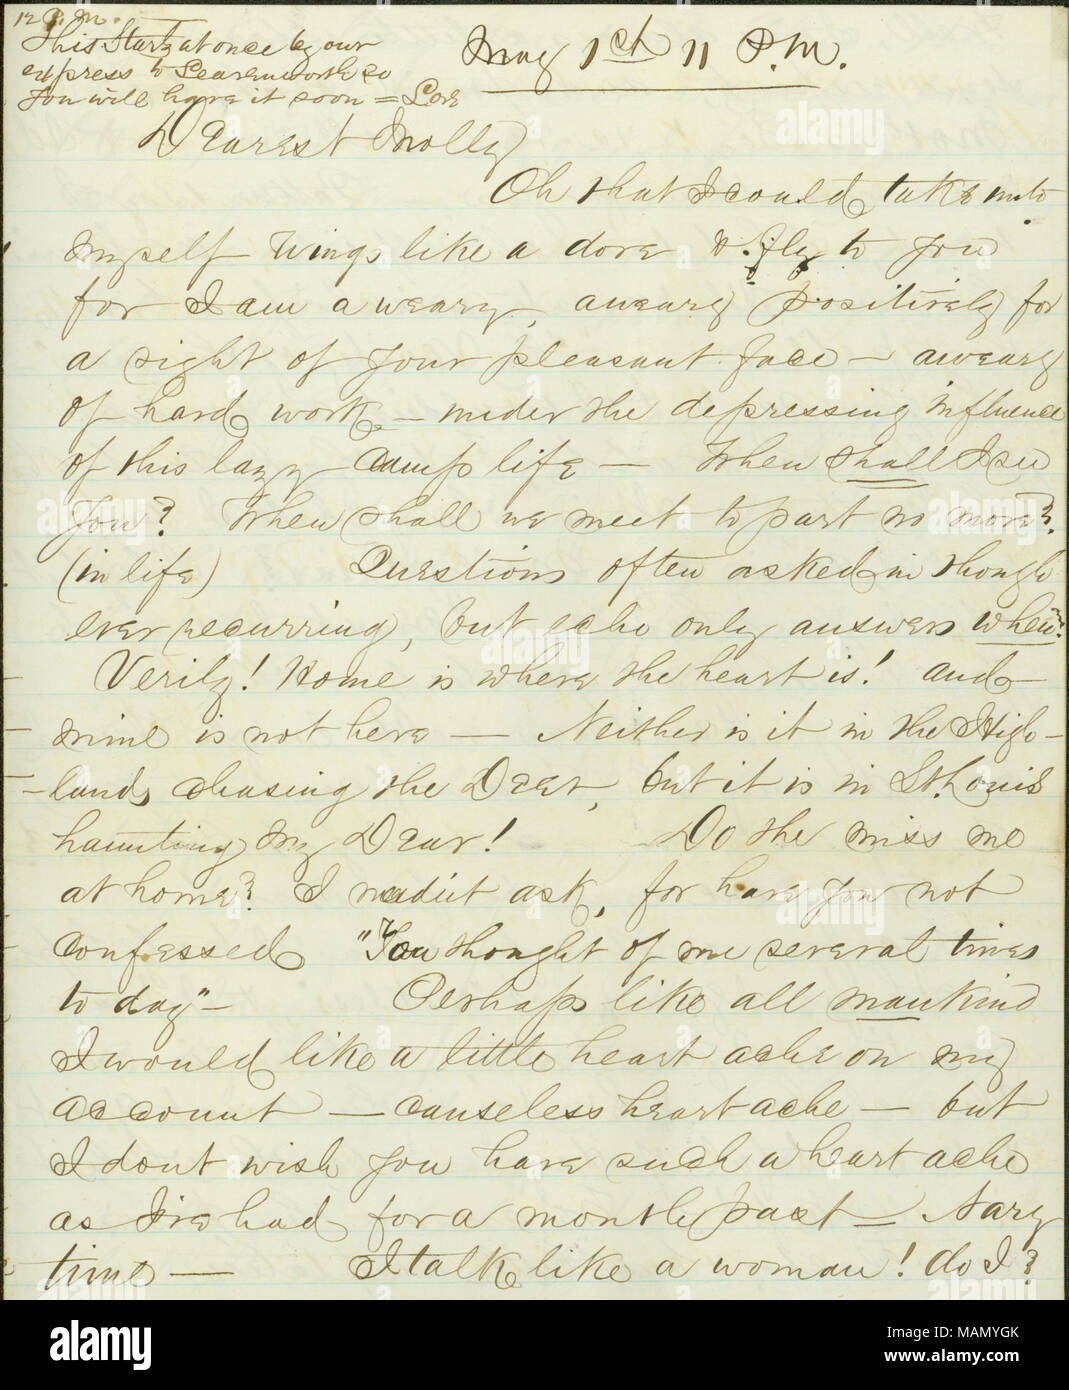 12 P. M.
This Starts at once by our
express to Leavenworth so
You will have it soon = Love
May 1st 11 P.M.
Dearest Molly
Oh that I could take unto
myself wings like a dove & fly to you
for I am aweary, aweary positively for
a sight of your pleasant face — aweary
of hard work — under the depressing influence
of this lazy camp life — When shall I see
You? When shall we meet to part no more?
(in life) Questions often asked in though
ever recurring, but echo only answers when?
Verily! Home is where the heart is! and
mine is not here — Neither is it in the High-
-lands chasing the Deer, but it is in St. Louis
haunting my Dear! Do the miss me
at home? I needn't ask, for have you not
confessed "You thought of me several times
to day" — Perhaps like all mankind
I would like a little heart ache on my
account — causeless heart ache — but
I dont wish you have such a heart ache
as I've had for a month past — Nary
time — I talk like a woman! do I?
alamy
Image ID: MAMYGK
www.alamy.com